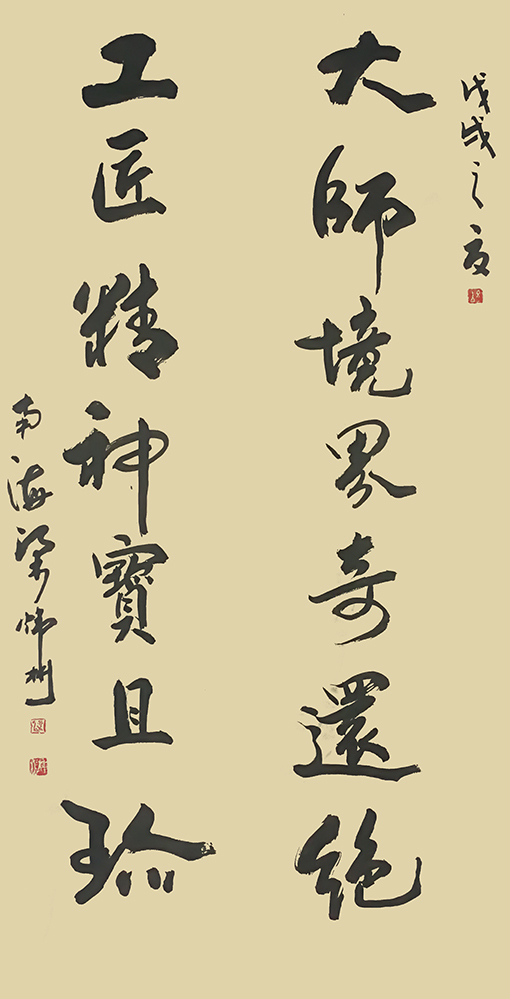 戊戌之夏
大師境界奇還絕
工匠精神寶且珍
南海梁炜彬